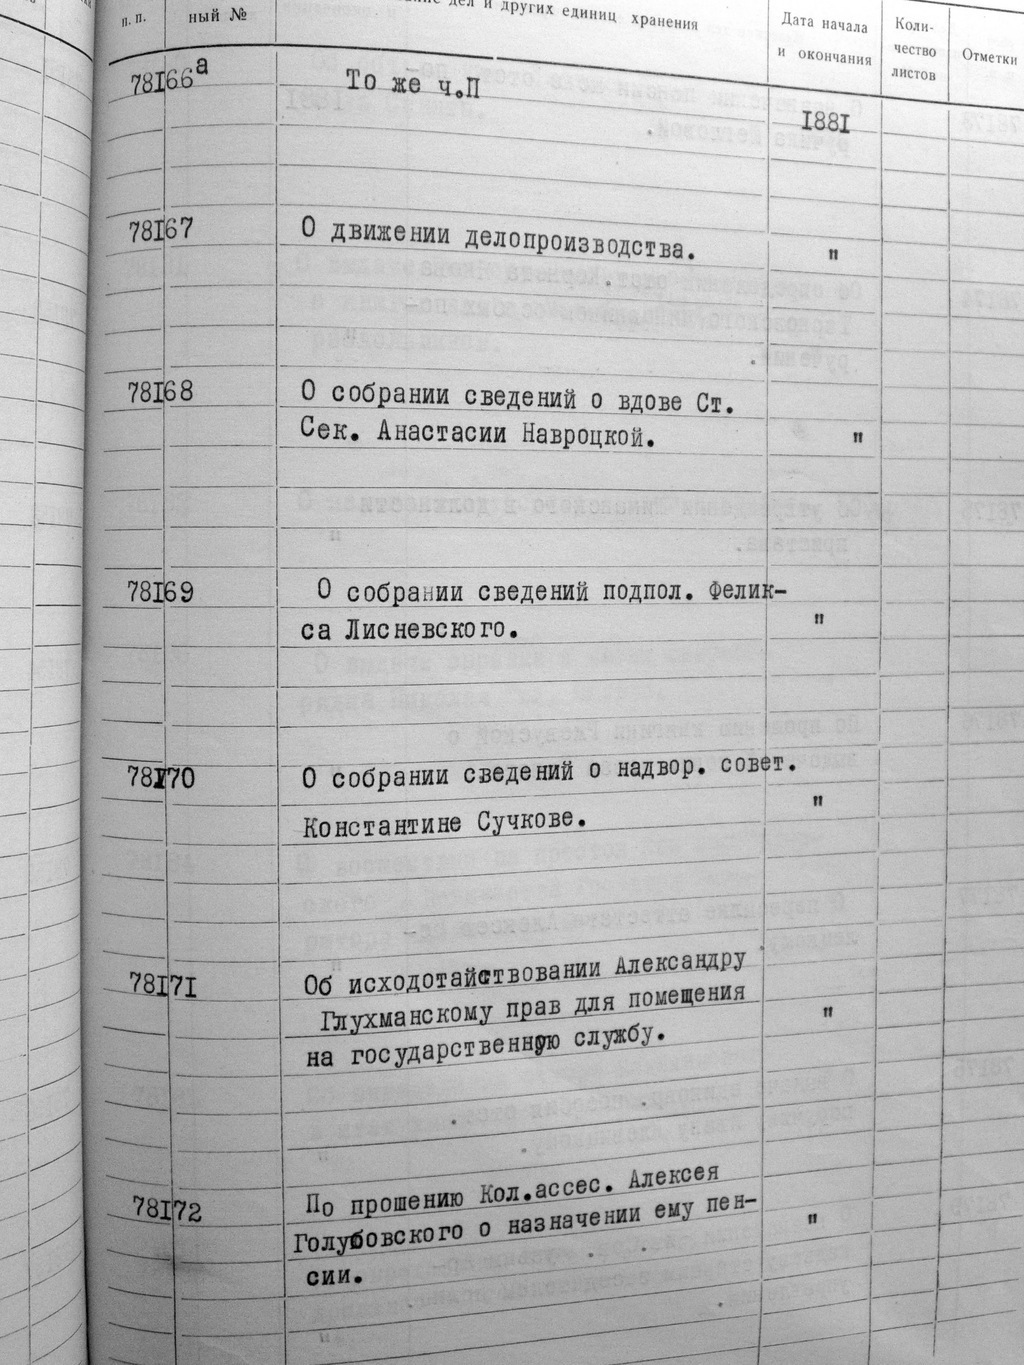 п. п.
ный №
дел и других единиц хранения
Дата начала
и окончания
Коли-
чество
листов
Отметки
78I66а То же ч.П
I88I
78I67 О движении делопроизводства. "
78I68 О собрании сведений о вдове Ст.
Сек. Анастасии Навроцкой. "
78I69 О собрании сведений подпол. Фелик-
са Лисневского. "
78I70 О собрании сведений о надвор. совет.
Константине Сучкове. "
78I7I Об исходотайствовании Александру
Глухманскому прав для помещения "
на государственную службу.
78I72 По прошению Кол.ассес. Алексея
Голубовского о назначении ему пен- "
сии.